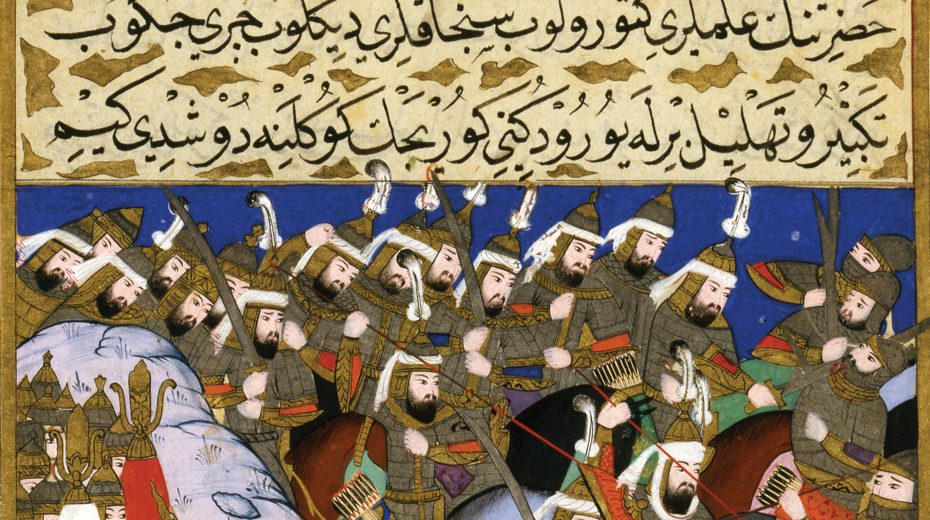 حضرتنك علملري كتورولوب سنجاقلري ديكلوب جري جكوب
تكبير و تهليل برله يورودكني كوريجك كوكلينه دوشدي كيم